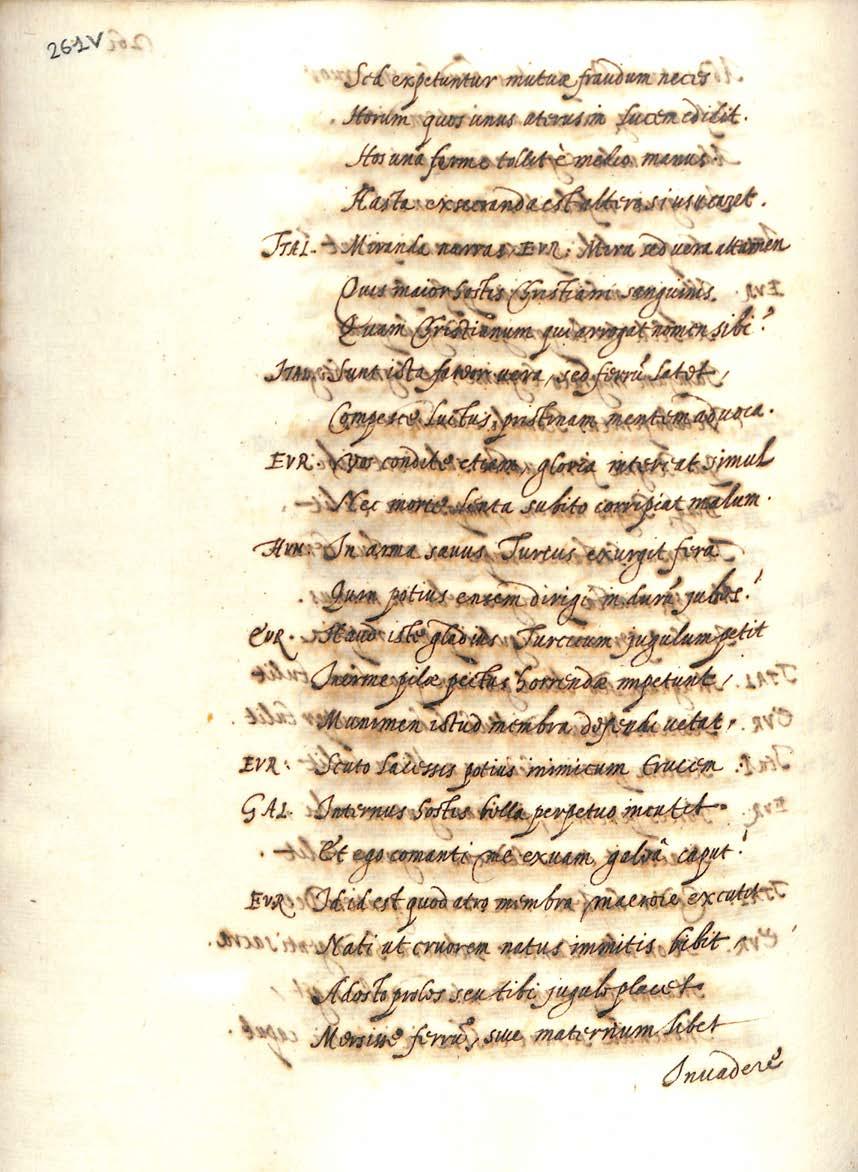 261V
Sed expetuntur mutuæ fraudum neces
Horum quos unus uterus in lucem edidit.
Hos unâ ferme tollit è medio manus.
Hasta exsecranda est altera si usu caret.
ITAL. Miranda narras, EVR: Mira sed vera attamen
Quis maior hostis Christiani sanguinis
Quam Christianum qui arrogat nomen sibi?
ITAL. Sunt ista fateor vera, sed ferrũ latet,
Compesce luctus, pristinam mentem advoca.
EVR. Vos condite etiam, gloria intereat simul
Nec morte lenta subito corripiat malum.
HVN: In arma sæuus Turcus exurgit fera
Quam potius ensem dirigi in durũ jubes?
EVR. Haud iste gladius Turcicum jugulum petit
Inerme pilæ pectus horrendæ impetunt,
Munimen istud membra defendi uetat,
EVR: Scuto lacessis potius inimicum Crucem
GAL. Internus hostis bella perpetuo incutit
Et ego comanti me exuam galeâ caput?
EVR Id id est quod atro membra maerore excutit
Nati ut cruorem natus immitis bibit
Adesto proles seu tibi jugulo placet
Mersisse ferrũ, siue maternum libet
Inuadere